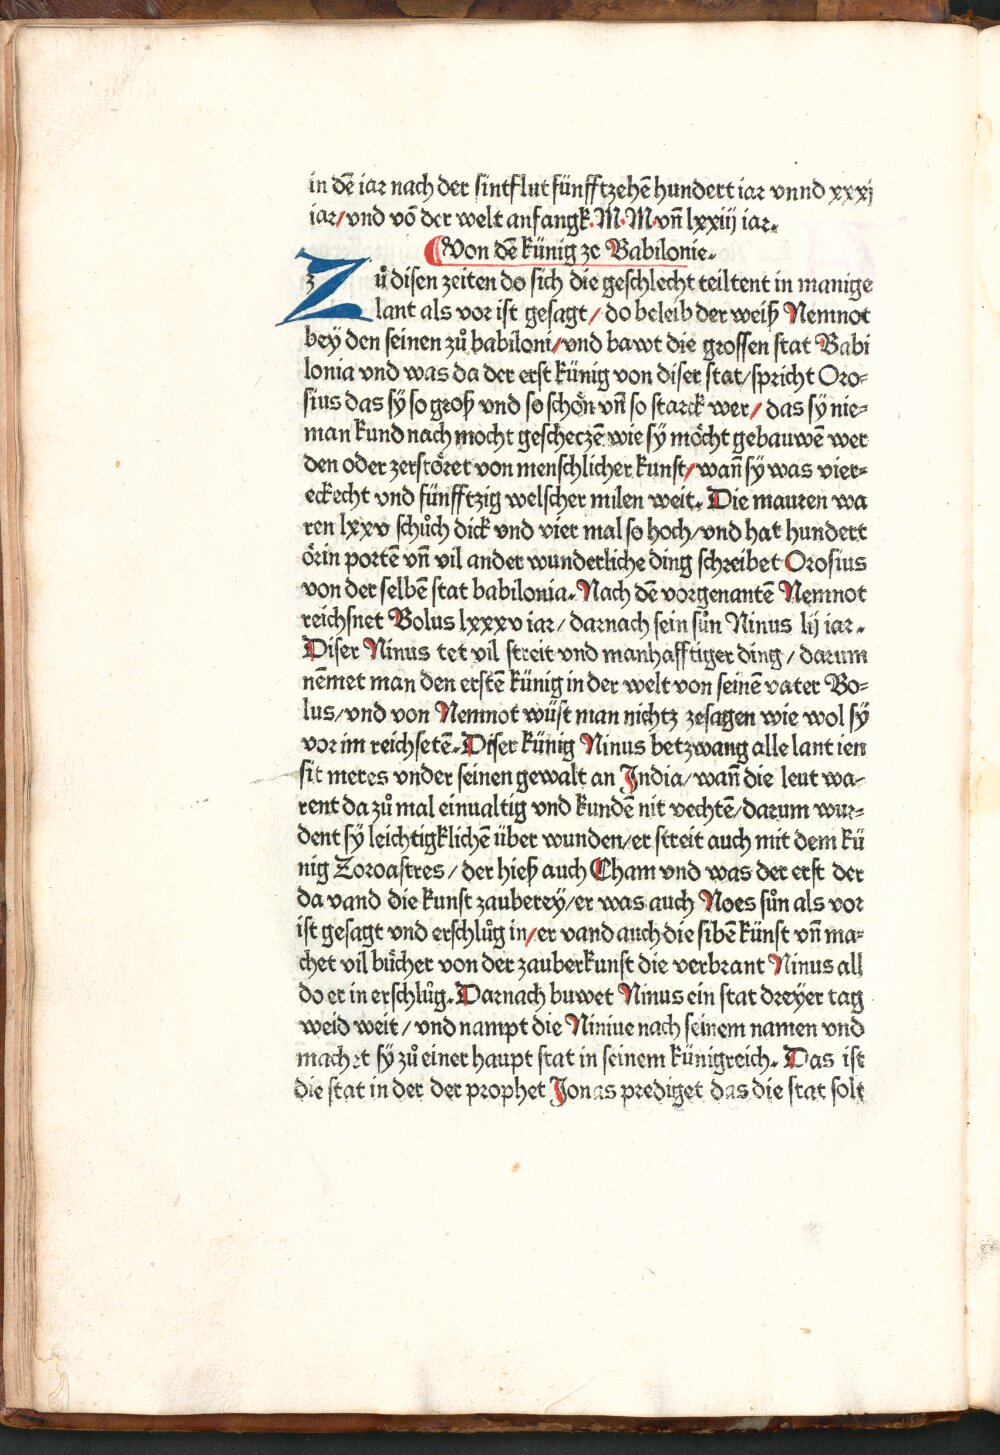 in dē iar nach der sintflut fünfftzehē hundert iar vnnd xxxj
iar/vnd vō der welt anfangk.M.M.vn̄ lxxiij iar.
Von dē künig ze Babilonie.
Zů disen zeiten do sich die geschlecht teiltent in manige
lant als vor ist gesagt/ do beleib der weiß Nemnot
bey den seinen zů babiloni/vnd bawt die grossen stat Babi
lonia vnd was da der erst künig von diser stat/spricht Oro⸗
sius das sÿ so groß vnd so schön vn̄ so starck wer/ das sÿ nie⸗
man kund nach mocht gescheczē wie sÿ möcht gebauwē wer
den oder zerstöret von menschlicher kunst/wan̄ sÿ was vier⸗
eckecht vnd fünfftzig welscher milen weit. Die mauren wa
ren lxxv schůch dick vnd vier mal so hoch/vnd hat hundert
örin portē vn̄ vil ander wunderliche ding schreibet Orosius
von der selbē stat babilonia. Nach dē vorgenantē Nemnot
reichsnet Bolus lxxxv iar/ darnach sein sůn Ninus lij iar.
Diser Ninus tet vil streit vnd manhafftiger ding/ darum
nēmet man den erstē künig in der welt von seinē vater Bo⸗
lus/vnd von Nemnot wüst man nichtz zesagen wie wol sÿ
vor im reichsetē. Diser künig Ninus betzwang alle lant ien
sit meres vnder seinen gewalt an India/wan̄ die leut wa⸗
rent da zů mal einualtig vnd kundē nit vechtē/darum wur⸗
dent sÿ leichtigklichē über wunden/er streit auch mit dem kü
nig Zoroastres/ der hieß auch Cham vnd was der erst der
da vand die kunst zauberey/er was auch Noes sůn als vor
ist gesagt vnd erschlůg in/er vand auch die sibē künst vn̄ ma⸗
chet vil bücher von der zauberkunst die verbrant Ninus all
do er in erschlůg. Darnach buwet Ninus ein stat dreyer tag
weid weit/ vnd nampt die Niniue nach seinem namen vnd
machet sÿ zů einer haupt stat in seinem künigreich. Das ist
die stat in der der prophet Jonas prediget das die stat solt